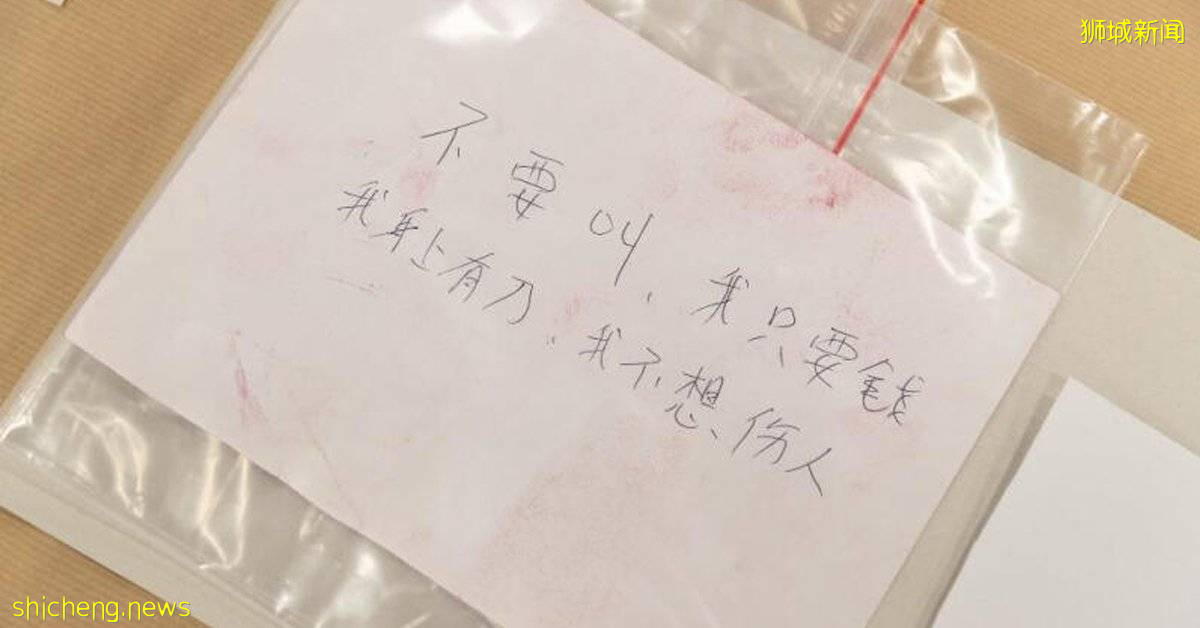 狮城新闻
不要叫，我只要钱
我身上有刀，我不想伤人
shicheng.news